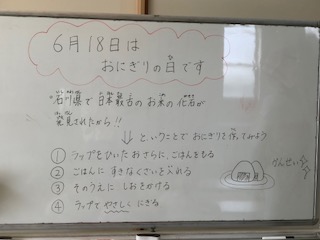 6月18日は
おにぎりの日です
石川県で日本最古のお米の化石が
発見されたから!!
ということでおにぎりを作ってみよう
① ラップをひいたおさらに、ごはんをもる
② ごはんに すきなぐざいを入れる
③ そのうえに しおをかける
④ ラップで やさしく にぎる
かんせい